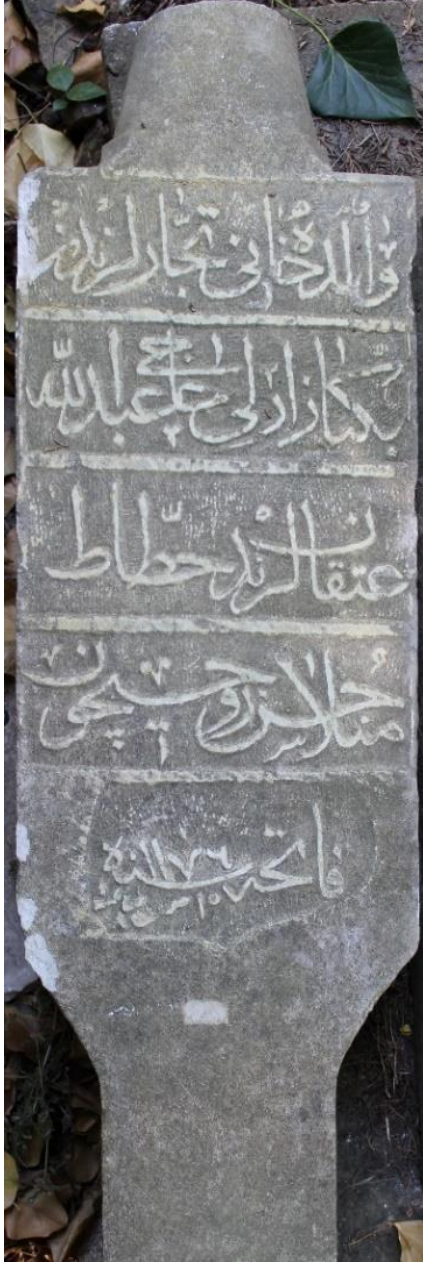 والده خانی تجارلرندن
بكبازارلی حاجی عبدالله
عتقالرندن خطاط
منلا خسرو حسیچون
فاتحه سنه ١١٧٦